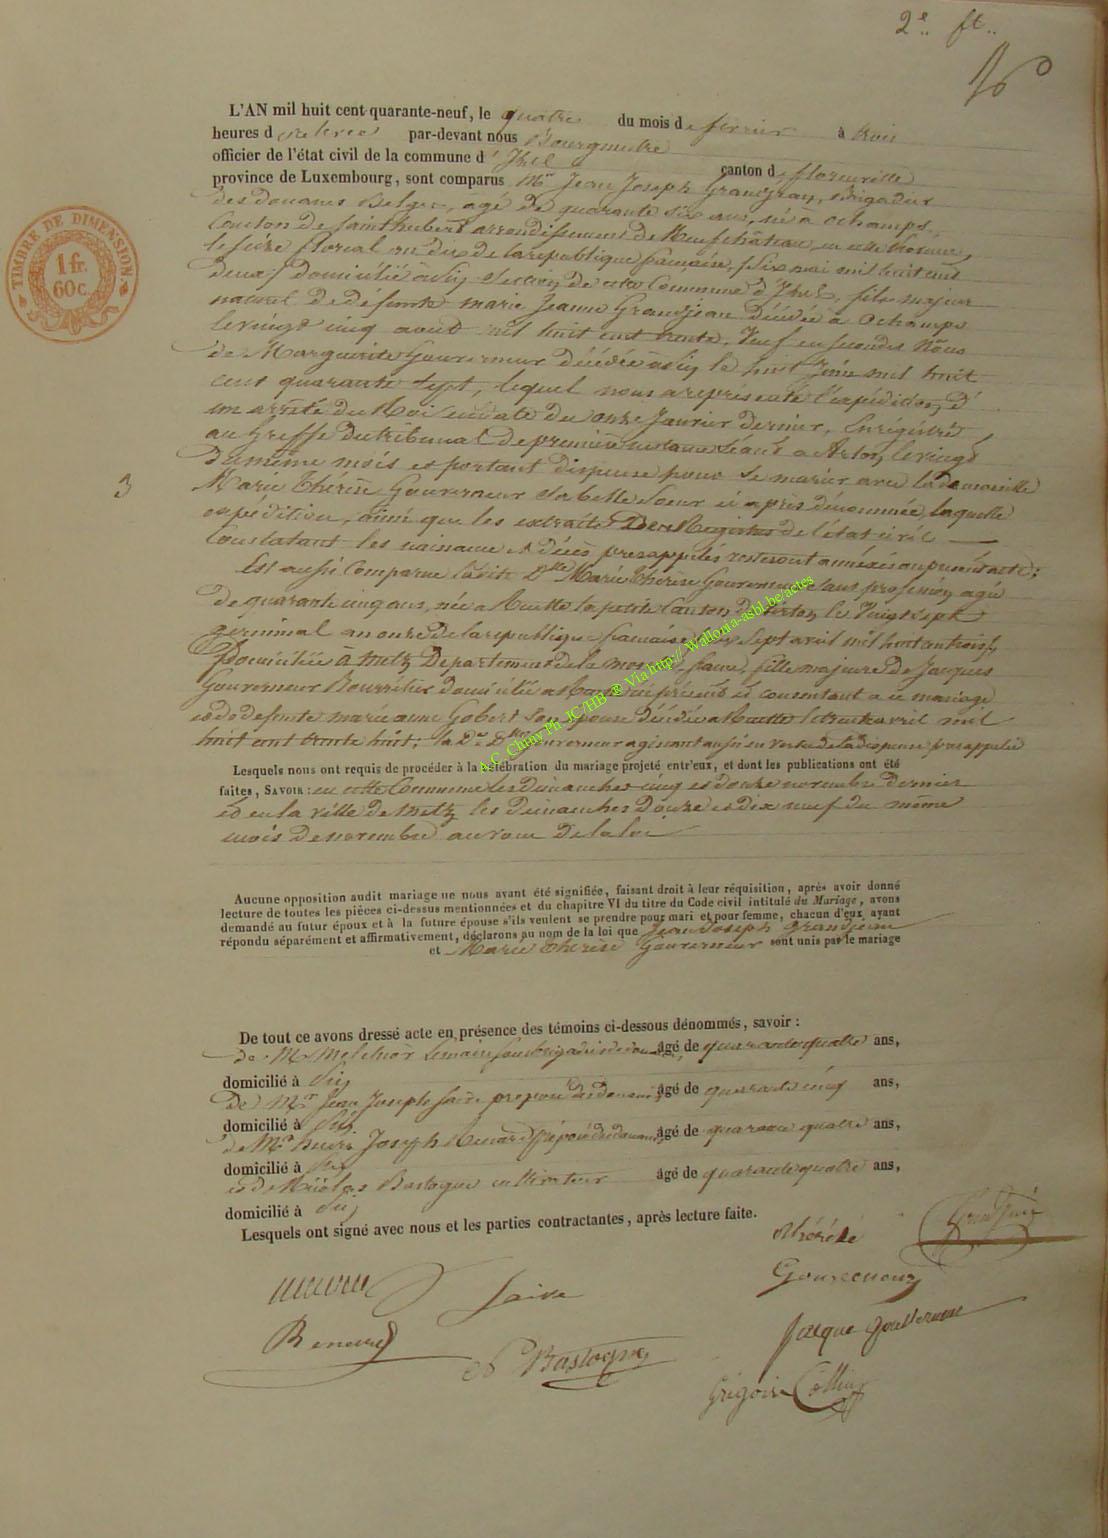 2e ft..
16
L'AN mil huit cent quarante-neuf, le quatre du mois de février à trois
heures de relevée par-devant nous Bourgmestre
officier de l'état civil de la commune d' Izel canton de florenville
province de Luxembourg, sont comparus Mr Jean Joseph Grandjean, Brigadier
des douanes Belges, agé de quarante six ans, né à ochamps,
Canton de Saint hubert arrondissement de Neufchâteau, en cette province,
le seize floréal an dix de la république française, (six mai mil huit cent
deux) domicilié à section de cette Commune d'Izel, fils majeur
naturel de défunte marie Jeanne Grandjean décédée à Ochamps
le vingt cinq août mil huit cent trente, Veuf en secondes Nôces
de Marguerite Gouverneur décédée le huit mil huit
cent quarante sept, lequel nous a représenté l'expédition d'
un arrêté du Roi en date du onze Janvier dernier, Enregistré
au Greffe du tribunal de première instance séant à Arlon, le vingt
du même mois et portant dispense pour se marier avec la demoiselle
3
Marie Thérèse Gouverneur sa belle soeur ci après dénommée, laquelle
expédition, ainsi que les extraits Des Registres de l'état civil
Constatant les naissances et décès prérappelés resteront annéxés au présent acte;
Est aussi Comparue ladite Dlle Marie Thérèse Gouverneur, sans profession, agée
de quarante cinq ans, née à Ruette la petite Canton de le Vingt sept
germinal an onze de la république française, sept avril mil huit cent trois)
Domiciliée à Metz Département de la fille majeure de Jacques
Gouverneur Bourrélier domicilié à présent et consentant à ce mariage
et de défunte marie anne Gobert son épouse décédée à Ruette le avril mil
huit cent trente huit; la De Dlle Gouverneur agissant aussi en vertu de la dispense prérappelée
Lesquels nous ont requis de procéder à la célébration du mariage projeté entr'eux, et dont les publications ont été
faites, SAVOIR: en cette Commune les dimanches cinq et douze novembre dernier
et en la ville de Metz les dimanches Douze et dix neuf du même
mois de novembre au voeu de la loi
Aucune opposition audit mariage ne nous ayant été signifiée, faisant droit à leur réquisition, après avoir donné
lecture de toutes les pièces ci-dessus mentionnées et du chapitre VI du titre du Code civil intitulé du Mariage, avons
demandé au futur époux et à la future épouse s'ils veulent se prendre pour mari et pour femme, chacun d'eux ayant
répondu séparément et affirmativement, déclarons au nom de la loi que Jean Joseph Grandjean
et Marie Thérèse Gouverneur sont unis par le mariage
De tout ce avons dressé acte en présence des témoins ci-dessous dénommés, savoir :
de Mr Melchior Lemaire Sousbrigadier de douane, âgé de quarante quatre ans,
domicilié à
De Mr Jean Joseph Saive préposé des douanes âgé de quarante cinq ans,
domicilié à
de Mr henri Joseph Renard Préposé de douane âgé de quarante quatre ans,
domicilié à
et de Nicolas Bastogne cultivateur âgé de quarante quatre ans,
domicilié à
Lesquels ont signé avec nous et les parties contractantes, après lecture faite.
Grandjean
thérésé
Gouverneur
Saive
Jacque Gouverneur
Renard
N Bastogne
Grégoire Collin
TIMBRE DE DIMENSION
1 fr.
60 c.
A.C. Chiny Ph. JC/HB @ Via http://Wallonia-asbl.be/actes